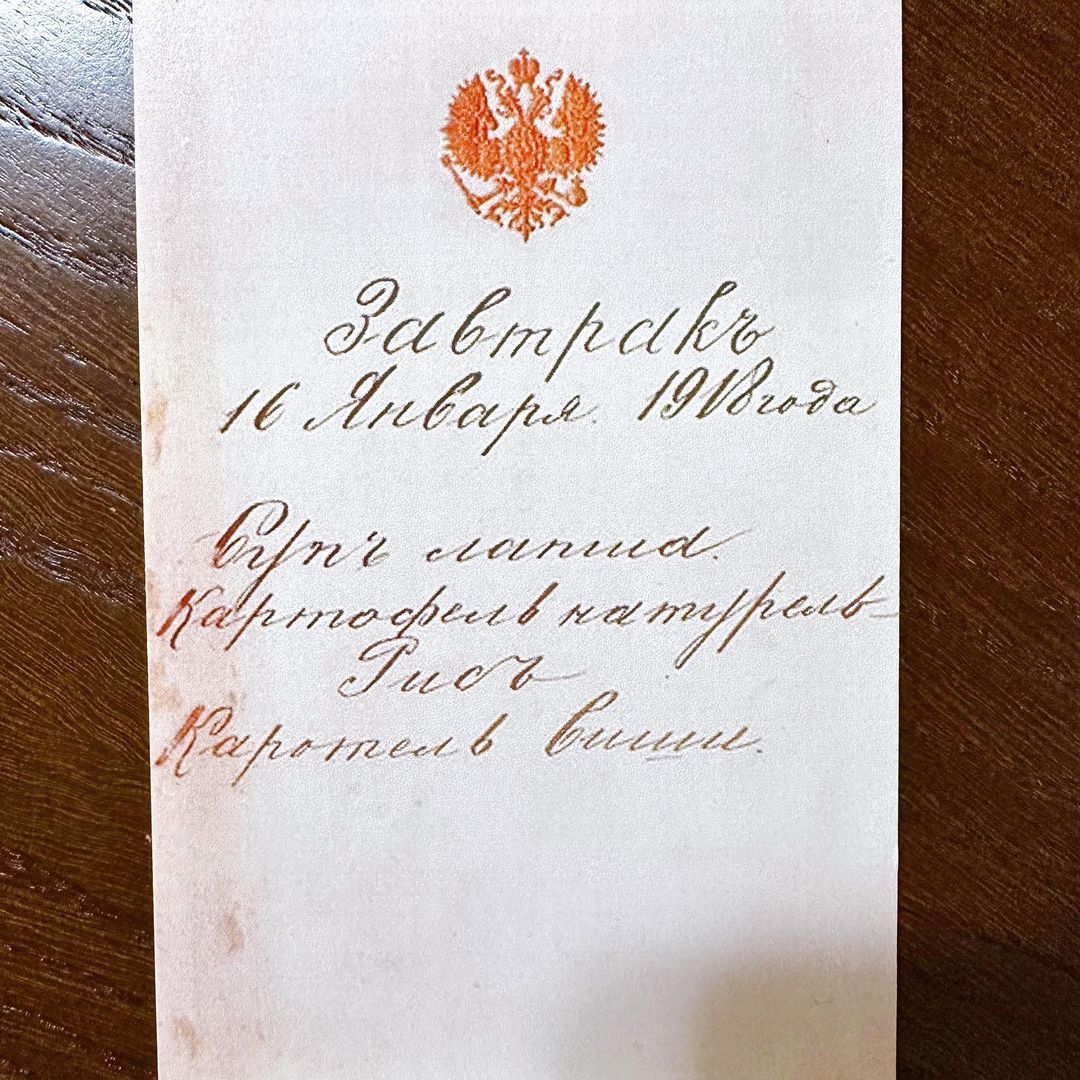 Завтракъ
16 Января. 1918 года
Супъ лапша.
Картофель натурель
Рисъ
Каротель виши.